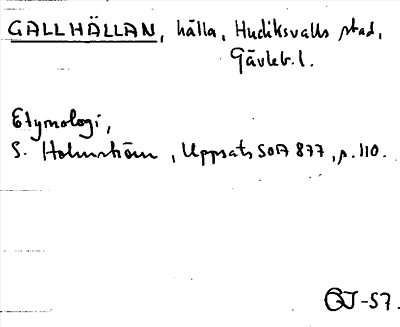 GALLHÄLLAN, hälla, Hudiksvalls stad,
Gävleb. l.
Etymologi,
S. Holmström, Uppsats SOA 877, s. 110.
GJ-57.